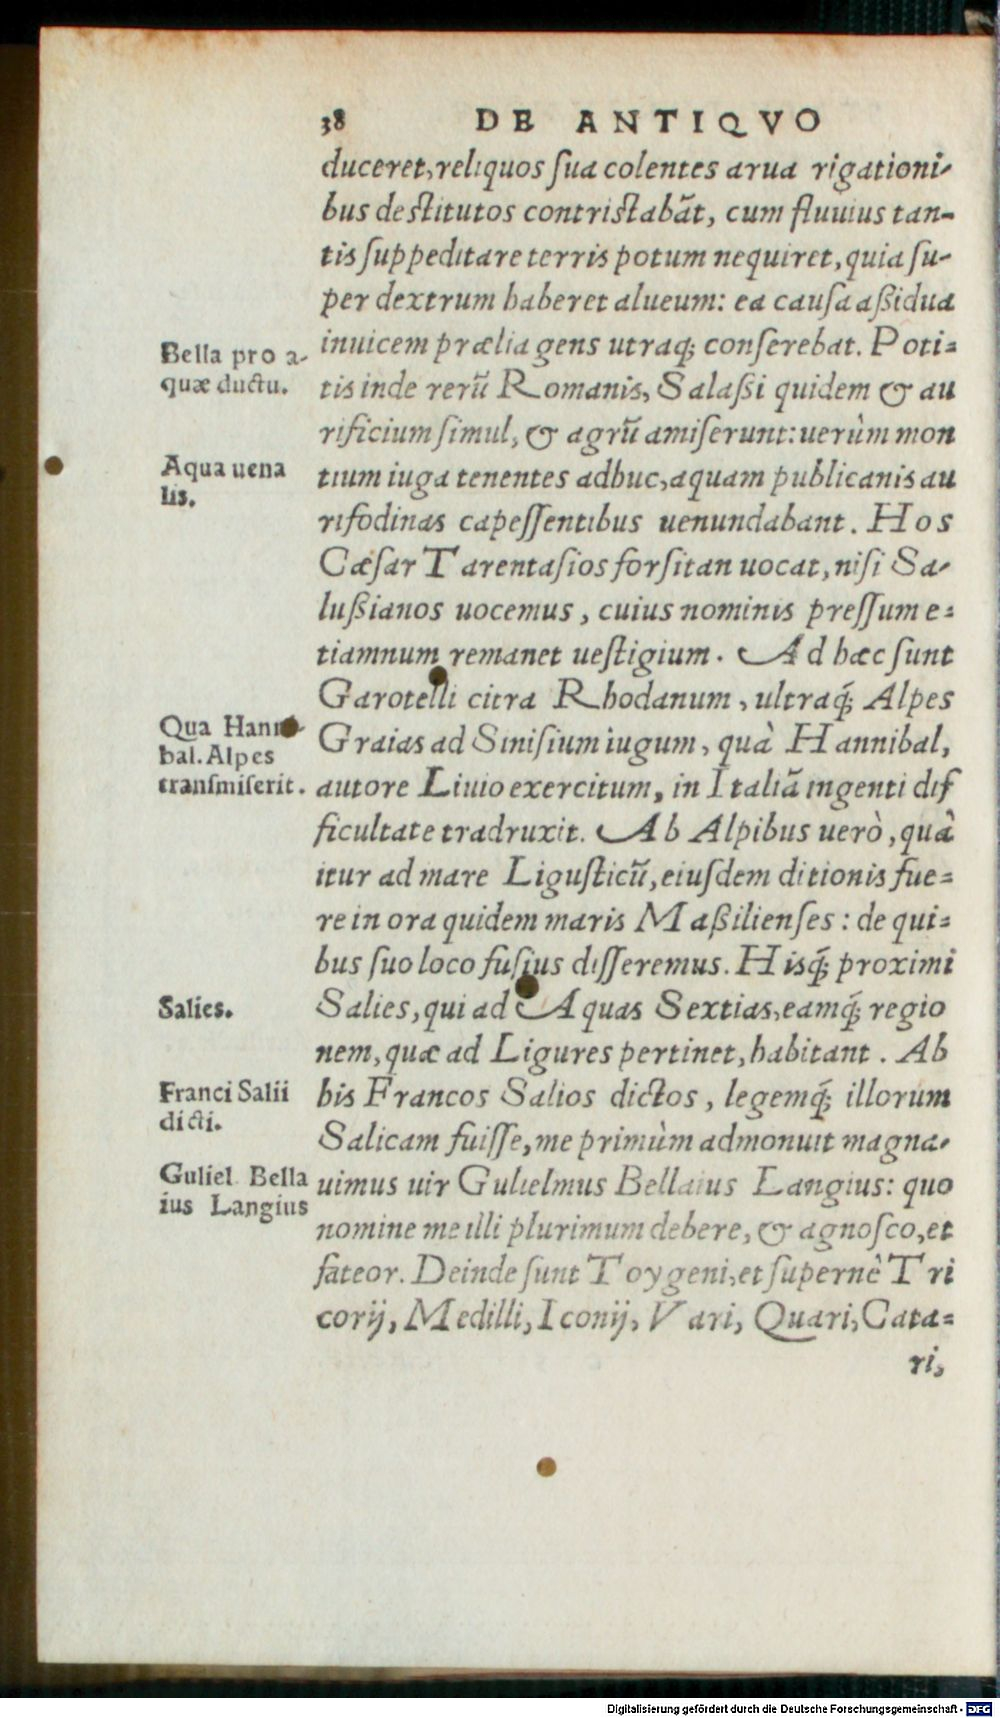 38 DE ANTIQVO
duceret, reliquos ſua colentes arua rigationi-
bus deſtitutos contriſtabãt, cum fluuius tan-
tis ſuppeditare terris potum nequiret, quia ſu-
per dextrum haberet alueum: ea cauſa aßidua
Bella pro a-
quæ ductu.
inuicem prælia gens utraq; conſerebat. Poti-
tis inde rerũ Romanis, Salaßi quidem & au
rificium ſimul, & agrũ amiſerunt: uerùm mon
Aqua uena
lis.
tium iuga tenentes adhuc, aquam publicanis au
rifodinas capeſſentibus uenundabant. Hos
Cæſar Tarentaſios forſitan uocat, niſi Sa-
lußianos uocemus, cuius nominis preſſum e-
tiamnum remanet ueſtigium. Ad hæc ſunt
Garotelli citra Rhodanum, ultraq́; Alpes
Qua Hanni-
bal. Alpes
tranſmiſerit.
Graias ad Siniſium iugum, quà Hannibal,
autore Liuio exercitum, in Italiã ingenti dif
ficultate tradruxit. Ab Alpibus uerò, quâ
itur ad mare Liguſticũ, eiuſdem ditionis fue-
re in ora quidem maris Maßilienſes: de qui-
bus ſuo loco fuſius diſſeremus. Hisq́; proximi
Salies.
Salies, qui ad Aquas Sextias, eamq́; regio
nem, quæ ad Ligures pertinet, habitant. Ab
Franci Salii
dicti.
his Francos Salios dictos, legemq́; illorum
Salicam fuiſſe, me primùm admonuit magna-
Guliel. Bella
ius Langius
uimus uir Gulielmus Bellaius Langius: quo
nomine me illi plurimum debere, & agnoſco, et
fateor. Deinde ſunt Toygeni, et ſupernè Tri
corij, Medilli, Iconij, Vari, Quari, Cata-
ri,
Digitalisierung gefördert durch die Deutsche Forschungsgemeinschaft - DFG